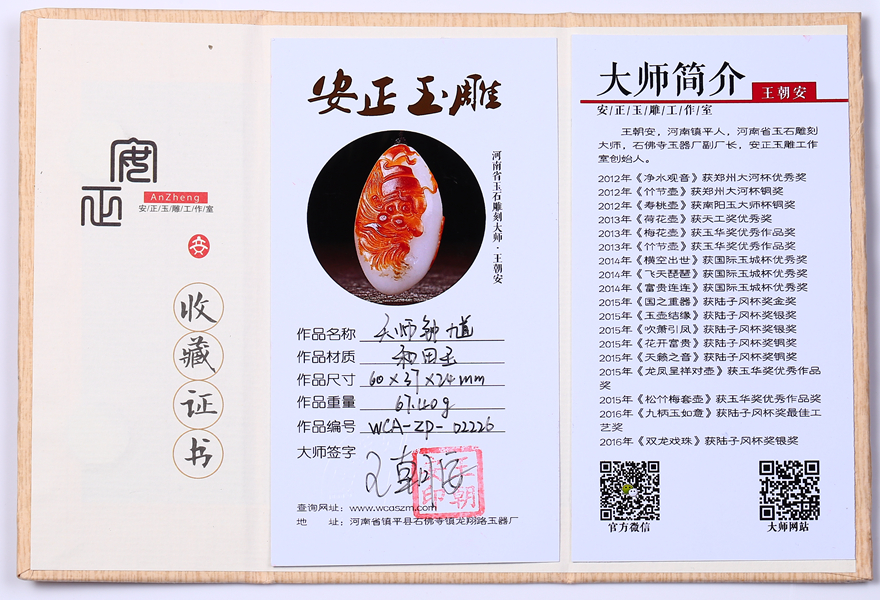 安正
AnZheng
安/正/玉/雕/工/作/室
安
收藏证书
安正玉雕
河南省玉石雕刻大师·王朝安
作品名称 天师钟馗
作品材质 和田玉
作品尺寸 60×37×24mm
作品重量 67.40g
作品编号 WCA-ZP-02226
大师签字 王朝安
王朝安印
查询网址：www.wcaszm.com
地　址：河南省镇平县石佛寺镇龙翔路玉器厂
大师简介
王朝安
安/正/玉/雕/工/作/室
王朝安，河南镇平人，河南省玉石雕刻
大师，石佛寺玉器厂副厂长，安正玉雕工作
室创始人。
2012年《净水观音》获郑州大河杯优秀奖
2012年《竹节壶》获郑州大河杯铜奖
2012年《寿桃壶》获南阳玉大师杯铜奖
2013年《荷花壶》获天工奖优秀奖
2013年《梅花壶》获玉华奖优秀作品奖
2013年《竹节壶》获玉华奖优秀作品奖
2014年《横空出世》获国际玉城杯优秀奖
2014年《飞天琵琶》获国际玉城杯优秀奖
2014年《富贵连连》获国际玉城杯优秀奖
2015年《国之重器》获陆子冈杯奖金奖
2015年《玉壶结缘》获陆子冈杯奖银奖
2015年《吹箫引凤》获陆子冈杯奖银奖
2015年《花开富贵》获陆子冈杯奖铜奖
2015年《天籁之音》获陆子冈杯奖铜奖
2015年《龙凤呈祥对壶》获玉华奖优秀作品
奖
2015年《松竹梅套壶》获玉华奖优秀作品奖
2016年《九柄玉如意》获陆子冈杯奖最佳工
艺奖
2016年《双龙戏珠》获陆子冈杯奖银奖
官方微信
大师网站